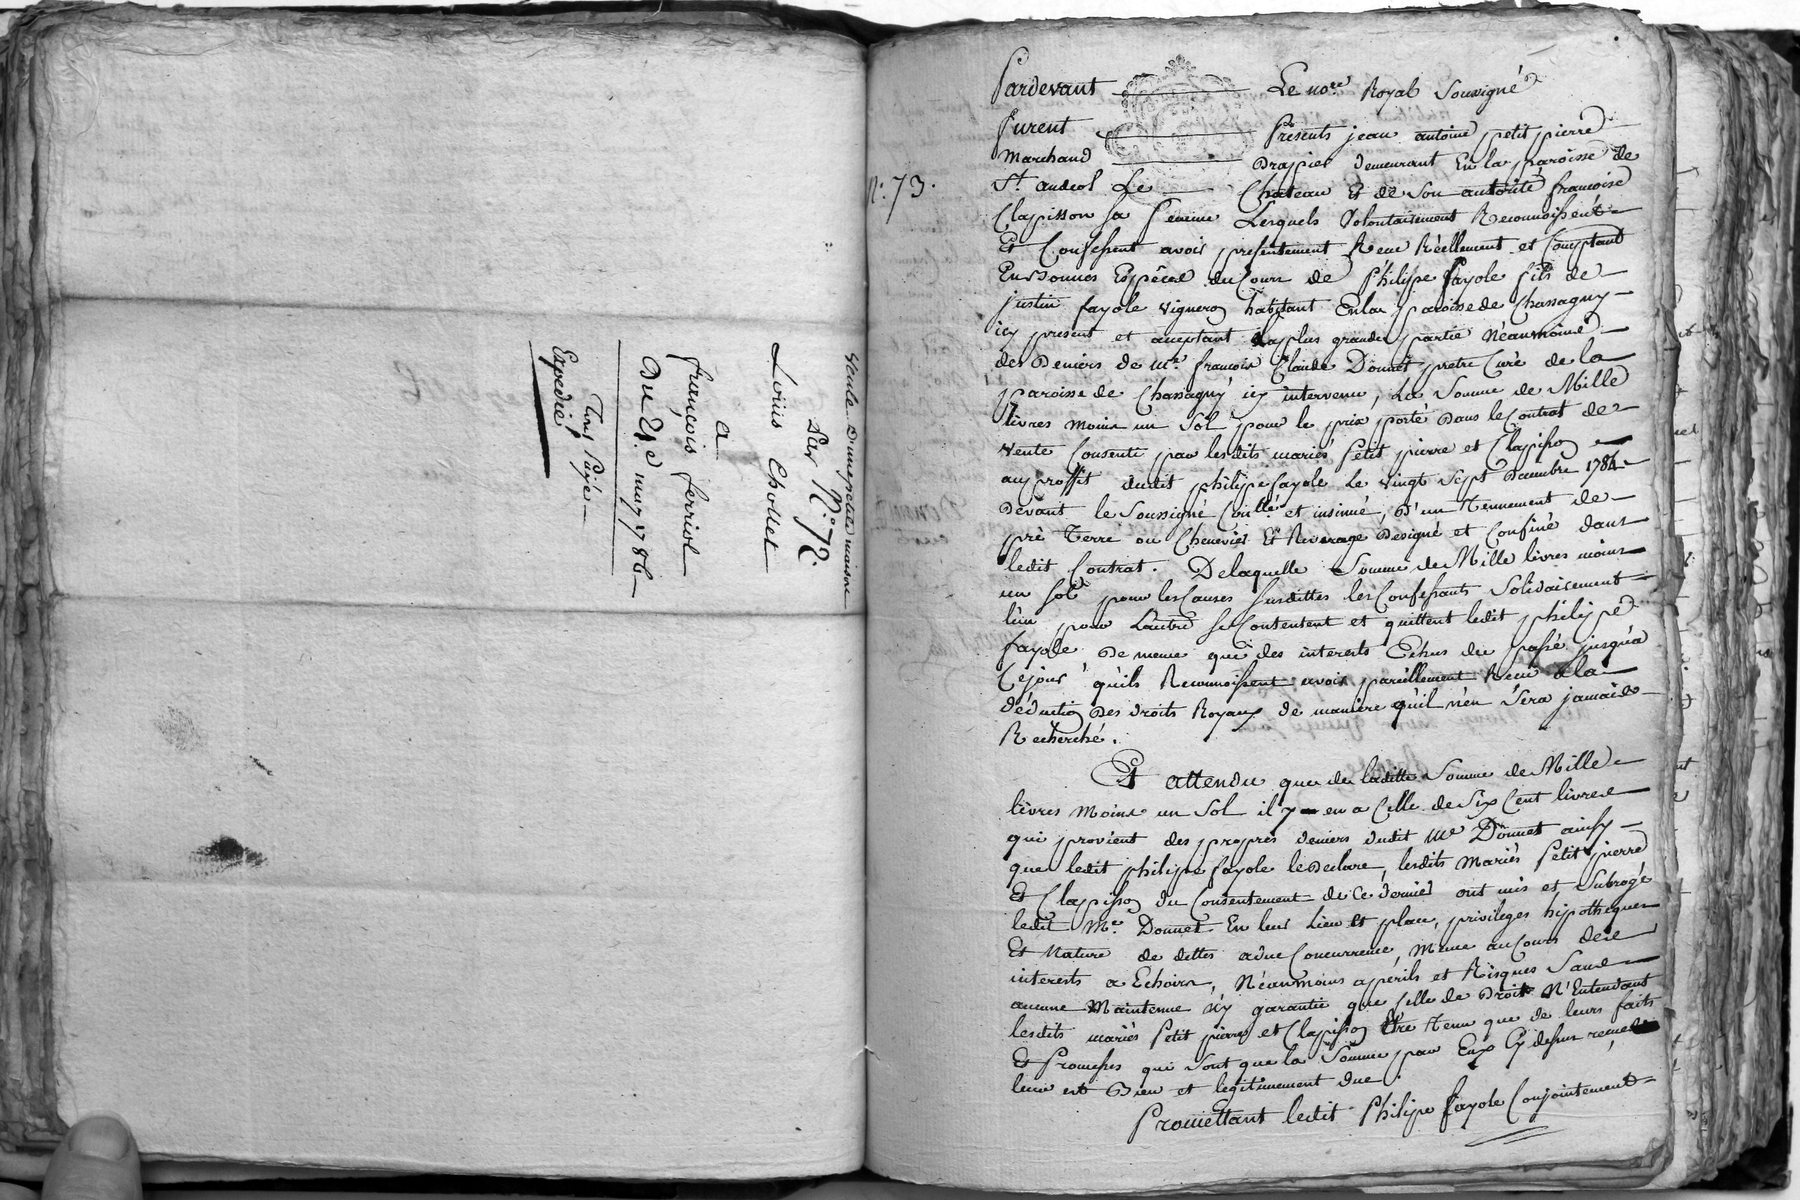 Vente D'une petite maison
Par N.° 72.
Loüis Chollet
a
françois ferriol
Du 21.e may 1786
Tous Payé
Expedié
N.° 73.
Pardevant Le no.re Royal Soussigné
furent Présents jean antoine petit pierre
Marchand Drapier demeurant En la paroisse de
S.t andeol Le Chateau Et de Son autorité francoise
Clapisson Sa femme Lesquels Volontairement Reconnoissent
Et Confessent avoir presentement Recu Réellement et Comptant
En bonnes Espéces du Cours de Philipe fayole fils de
justin fayole vigneron habitant En la paroisse de Chassagny
icy present et acceptant la plus grande partie Néanmoins
des Deniers de M.e francois Claude Donnet pretre Curé de la
paroisse de Chassagny icy intervenu, La Somme de Mille
livres moins un Sol pour le prix porté Dans le Contrat de
vente Consenti par lesdits mariés Petit pierre et Clapisson
au proffit dudit philipe fayole Le vingt Sept Decembre 1784
Devant le Soussigné Coñllé et insinué, D'un Tennement de
pré Terre ou Chenevier Et Riverage Designé et Confiné dans
ledit Contrat. De laquelle Somme de Mille livres moins
un Sol pour les Causes Susdittes les Confessants Solidairement
l'un pour Lautre se Contentent et quittent ledit philipe
fayole De meme que des interests Echus du passé jusqu'a
Cejour qu'ils Reconnoissent avoir pareillement Recu a la
déduction Des droits Royaux de maniere qu'il n'en Sera jamais
Recherché.
Et attendu que de laditte Somme de Mille
livres moins un Sol il y en a Celle de Six Cent livres
qui provient des propres deniers dudit M.e Donnet ainsy
que ledit philipe fayole le Declare, lesdits Mariés Petit pierre
Et Clapisson du Consentement de Ce dernier ont mis et Subrogé
ledit M.e Donnet En leur Lieu et place, privileges hipotheques
Et Nature de dettes a due Concurrence, Meme au Cours des
interests a Echoirs, Néanmoins a périls et Risques Sans
aucune Maintenue n'y garantie que Celle de Droit N'Entendant
lesdits mariés Petit pierre et Clapisson Etre Tenu que de leurs faits
Et Promesses qui Sont que la Somme par Eux Cy dessus recue
leur est Bien et legitimement due.
Promettant ledit Philipe fayole Conjointement